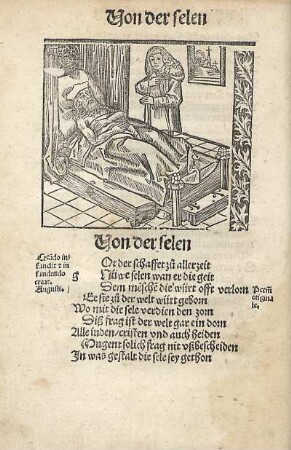 Von der selen
Von der selen
Creãdo in
fundit & in
fundendo
creat.
Augusti.
Ot der schaffet zů allerzeit
Nüwe selen wan er die geit
Dem mẽsche die würt offt verlorn
Ee sie zů der welt würt geborn
Wo mit die sele verdien den zorn
Diß frag ist der welt gar ein dorn
Alle iuden/cristen vnd auch heiden
Mugent solich frag nit vßbescheiden
In was gestalt die sele sey gethon
Peccm̃
origina
le.